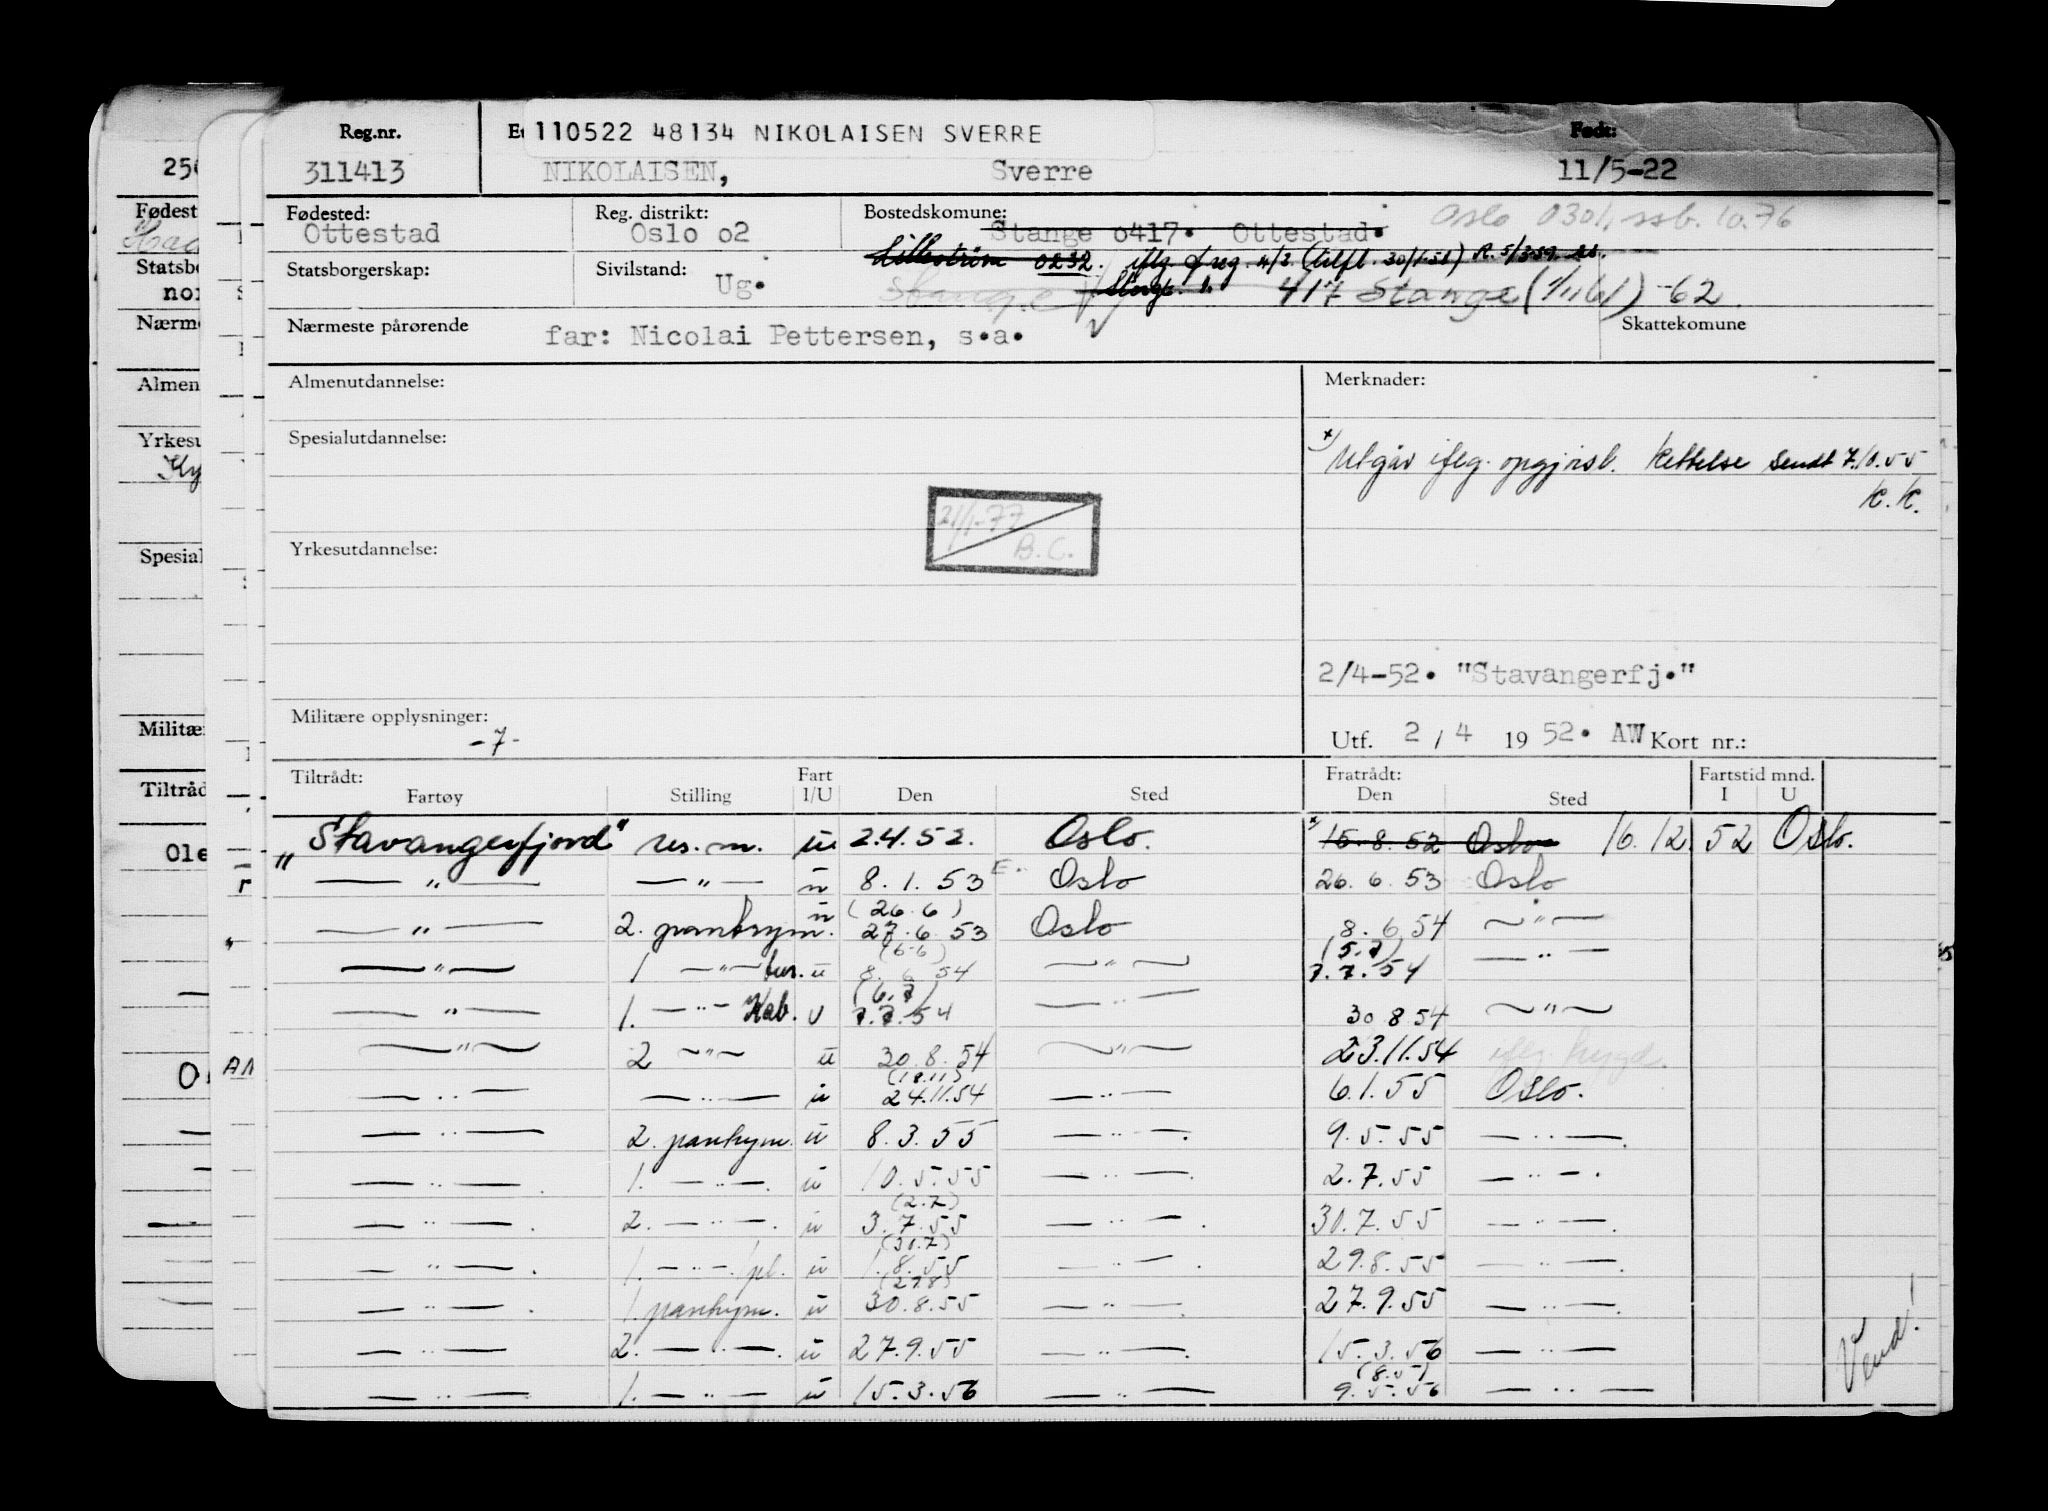 Reg.nr.
110522 48134 NIKOLAISEN SVERRE
Født:
311413
NIKOLAISEN, Sverre
11/5-22
Fødested:
Ottestad
Reg. distrikt:
Oslo o2
Bostedskomune:
Stange o417. Ottestad.
Oslo 0301, ssb. 10.76
Lilleström 0232.
Statsborgerskap:
Sivilstand:
Ug.
417 Stange (1/11 61) -62
Nærmeste pårørende
far: Nicolai Pettersen, s.a.
Skattekomune
Almenutdannelse:
Merknader:
Spesialutdannelse:
x) Utgår iflg. opgjørsl. Rettelse sendt 7/10.55
K.K.
21/1-77
B.C.
Yrkesutdannelse:
2/4-52. "Stavangerfj."
Militære opplysninger:
-7-
Utf. 2 / 4 19 52. AW Kort nr.:
Tiltrådt:
Fartøy
Stilling
Fart
I/U
Den
Sted
Fratrådt:
Den
Sted
Fartstid mnd.
I U
"Stavangerfjord" res.m. u 2.4.52. Oslo. x) 15.8.52 Oslo 16.12.52 Oslo.
— " — — " — u 8.1.53 Oslo 26.6.53 Oslo
— " — 2. pantrym. u (26.6) 27.6.53 Oslo 8.6.54 — " —
— " — 1 — " — tur. u (6.6) 8.6.54 — " — (5.7) 7.7.54 — " —
— " — 1. — " — Kab. u (6.7) 7.7.54 — " — 30.8.54 — " —
— " — 2 — " — u 30.8.54 — " — 23.11.54
— " — — " — u (18.11) 24.11.54 — " — 6.1.55 Oslo.
— " — 2. pantrym. u 8.3.55 — " — 9.5.55 — " —
— " — 1. — " — u 10.5.55 — " — 2.7.55 — " —
— " — 2. — " — u (2.7) 3.7.55 — " — 30.7.55 — " —
— " — 1. — " — /pl. u (30.7) 1.8.55 — " — 29.8.55 — " —
— " — 1. pantrym. u (29.8) 30.8.55 — " — 27.9.55 — " —
— " — 2. — " — u 27.9.55 — " — 15.3.56 — " —
— " — 1. — " — u 15.3.56 — " — (8.5) 9.5.56 — " —
Vend!